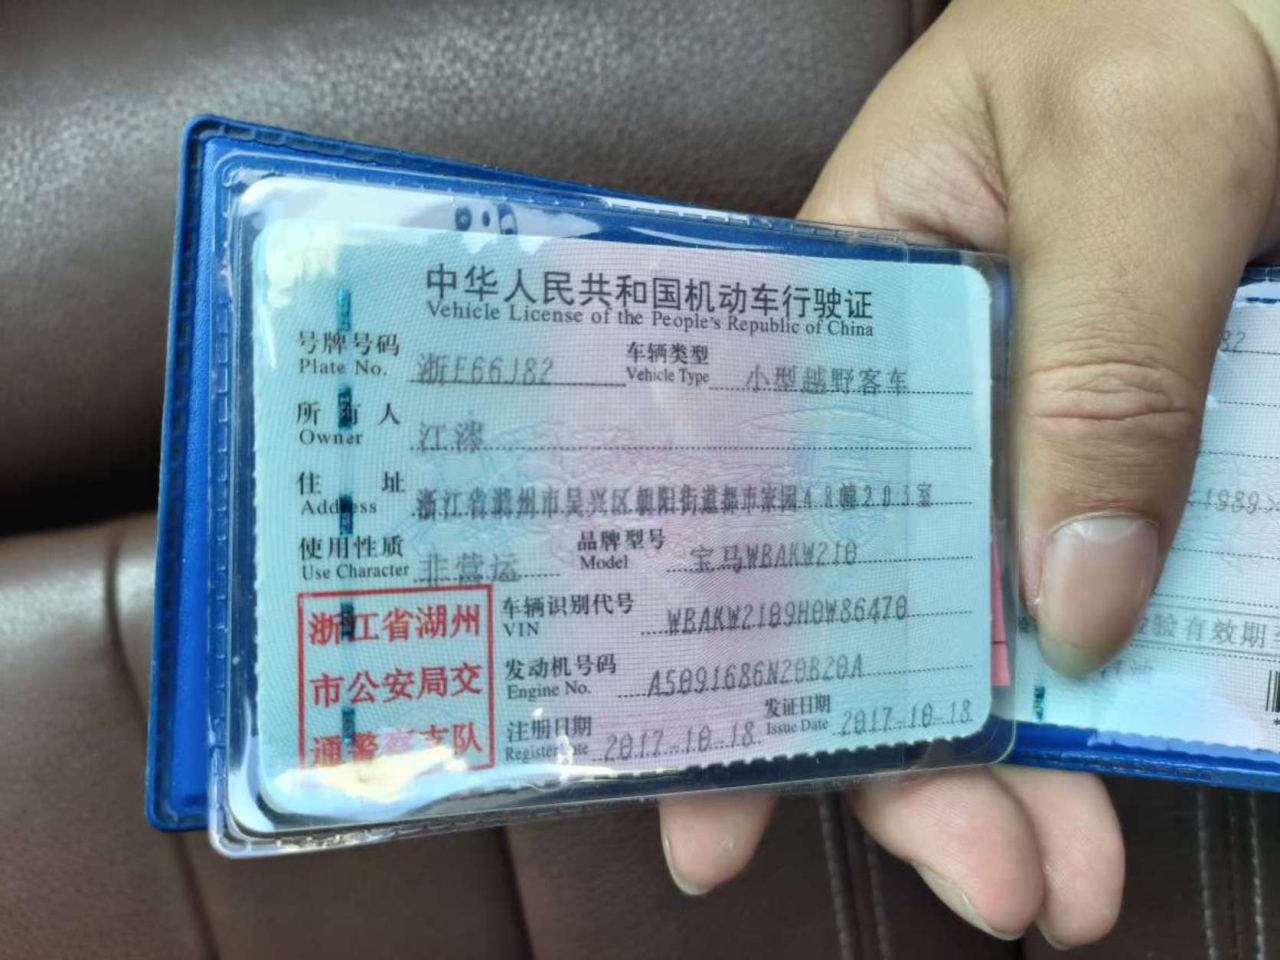 中华人民共和国机动车行驶证
Vehicle License of the People's Republic of China
号牌号码 浙E66J82 车辆类型 小型越野客车
Plate No. Vehicle Type
所有人 江涛
Owner
住址 浙江省湖州市吴兴区朝阳街道都市家园48幢203室
Address
使用性质 非营运 品牌型号 宝马WBAKW210
Use Character Model
浙江省湖州
市公安局交
通警察支队
车辆识别代号 WBAKW2109H0W86470
VIN
发动机号码 A5091686N20B20A
Engine No.
注册日期 2017-10-18 发证日期 2017-10-18
Register Date Issue Date
82
1989
验有效期